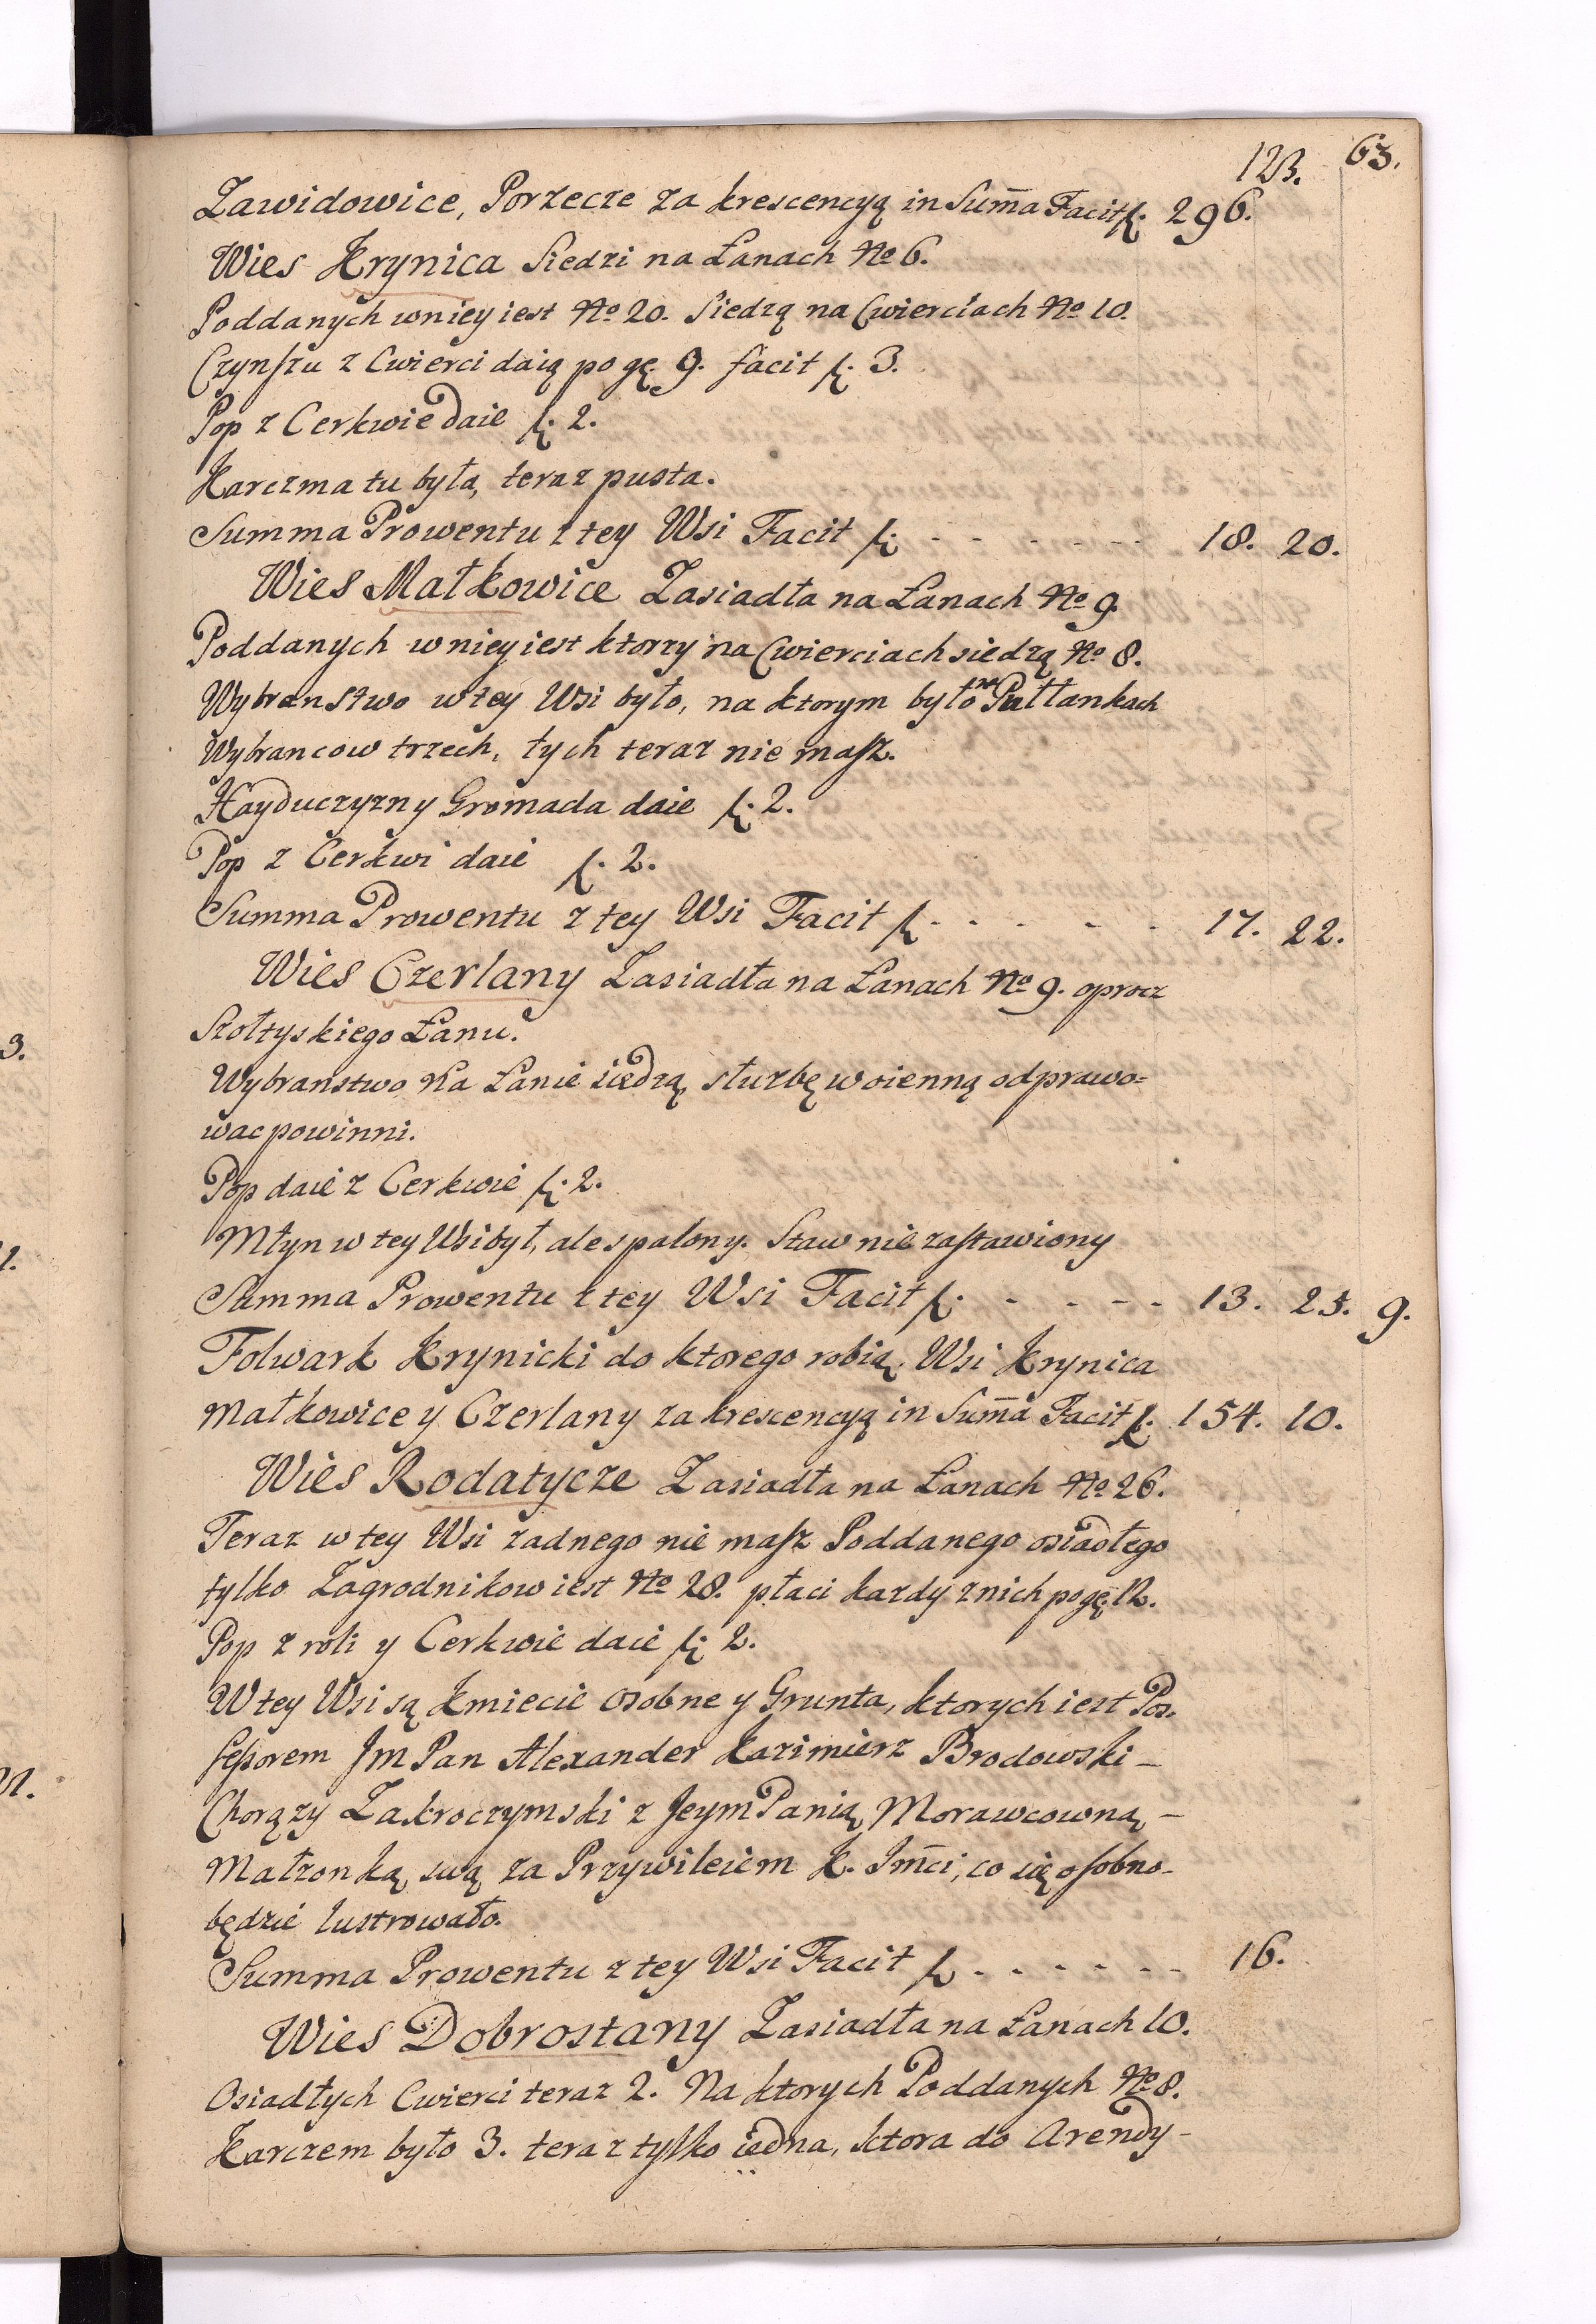 123. 63.
Zawidowice, Porzecze za krescencyą in Sum̃a Facit fl. 296.
Wies Krynica Siedzi na Łanach No 6.
Poddanych w niey iest No 20. Siedzą na Cwierciach No 10.
Czynszu z Cwierci daią po gę. 9. facit fl. 3.
Pop z Cerkwie daie fl. 2.
Karczma tu była, teraz pusta.
Summa Prowentu z tey Wsi Facit fl. - - - - - - - 18. 20.
Wies Małkowice Zasiadła na Łanach No 9.
Poddanych w niey iest ktorzy na Cwierciach siedzą No 8.
Wybranstwo w tey Wsi było, na ktorym było na Pułłankach
Wybrancow trzech, tych teraz nie masz.
Hayduczyzny Gromada daie fl. 2.
Pop z Cerkwi daie fl. 2.
Summa Prowentu z tey Wsi Facit fl - - - - - 17. 22.
Wies Czerlany Zasiadła na Łanach No 9. oprocz
Szołtyskiego Łanu.
Wybranstwo na Łanie siedzą, służbę woienną odprawo=
wac powinni.
Pop daie z Cerkwie fl. 2.
Młyn w tey Wsi był, ale spalony. Staw nie zastawiony
Summa Prowentu z tey Wsi Facit fl. - - - - 13. 25. 9.
Folwark Krynicki do ktorego robią Wsi Krynica
Małkowice y Czerlany za krescencyą in Sum̃a Facit fl. 154. 10.
Wies Rodatycze Zasiadła na Łanach No 26.
Teraz w tey Wsi zadnego nie masz Poddanego osiadłego
tylko Zagrodnikow iest No 28. płaci kazdy z nich po gę. 12.
Pop z roli y Cerkwie daie fl. 2.
W tey Wsi są Kmiecie osobne y Grunta, ktorych iest Pos-
sessorem Jm Pan Alexander Kazimierz Brodowski -
Chorązy Zakroczymski z Jeym Panią Morawcowną -
Małzonką swą za Przywileiem K. Jm̃ci, co się osobno-
będzie lustrowało.
Summa Prowentu z tey Wsi Facit fl - - - - - - 16.
Wies Dobrostany Zasiadła na Łanach 10.
Osiadłych Cwierci teraz 2. Na ktorych Poddanych No 8.
Karczem było 3. teraz tylko iedna, ktora do Arendy -